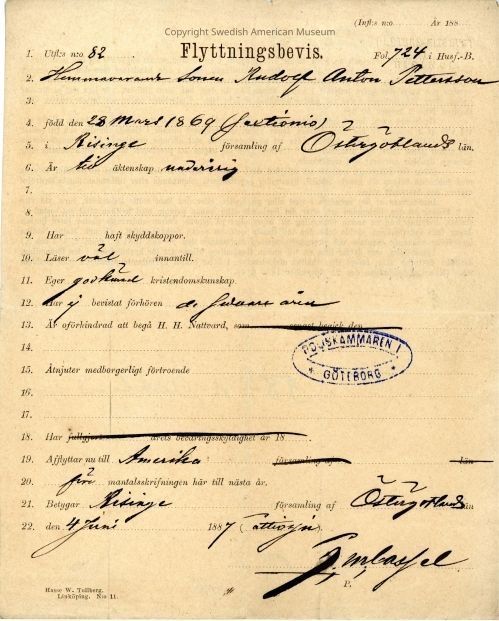 Copyright Swedish American Museum
(Infl:s n:o År 188
1. Utfl:s n:o 82 Flyttningsbevis. Fol. 724 i Husf.-B.
2. Hemmavarande Sonen Rudolf Anton Pettersson
3.
4. född den 28 Mars 1869 (sextionio)
5. i Risinge församling af Östergötlands län.
6. Är till äktenskap underårig
7.
8.
9. Har haft skyddskoppor.
10. Läser väl innantill.
11. Eger godkänd kristendomskunskap.
12. Har ej bevistat förhören de senare åren
13. Är oförhindrad att begå H. H. Nattvard, som senast begick den
14.
POLISKAMMAREN I
* GÖTEBORG *
15. Åtnjuter medborgerligt förtroende
16.
17.
18. Har fullgjort årets beväringsskyldighet år 18
19. Afflyttar nu till Amerika församling af län
20. före mantalsskrifningen här till nästa år.
21. Betygar Risinge församling af Östergötlands län
22. den 4 Juni 1887 (åttisju)
P.
Hause W. Tollberg.
Linköping. N:o 11.